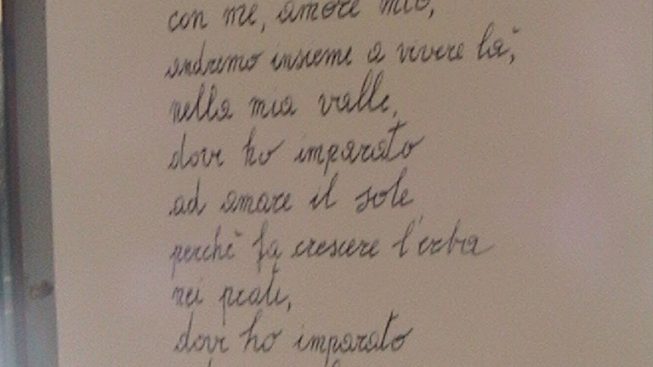 con me, amore mio,
andremo insieme a vivere là,
nella mia valle,
dove ho imparato
ad amare il sole
perchè fa crescere l'erba
nei prati,
dove ho imparato